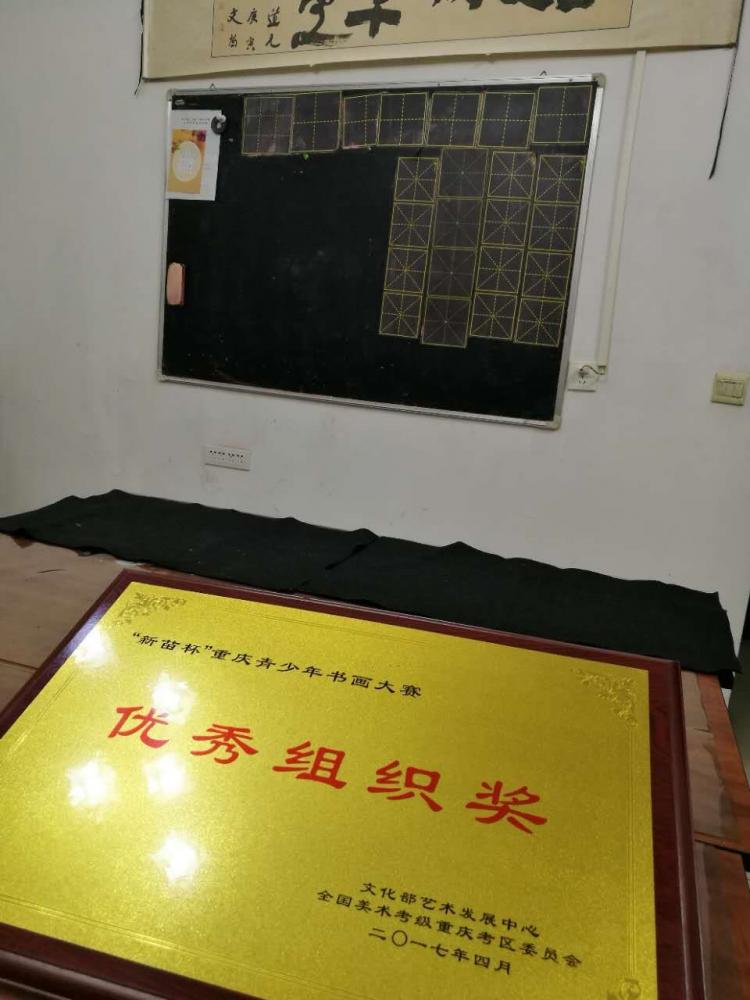 道九
庚寅
文
"新苗杯"重庆青少年书画大赛
优秀组织奖
文化部艺术发展中心
全国美术考级重庆考区委员会
二〇一七年四月